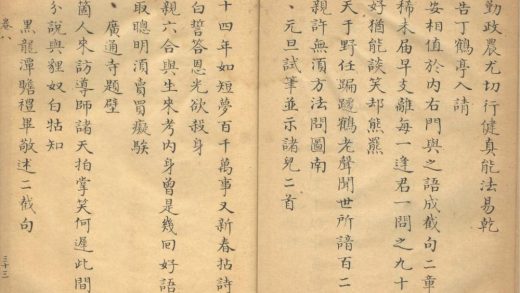 勤政農尤切行健真能法易乾
告丁鶴亭入請
姿相值於內右門與之語成截句二章
稀未屆早支離每一逢君一問之九十
好猶能談笑却熊羆
天于野任蹁躚鶴老聲聞世所諳百二
親許無湏方法問圖南
、元旦試筆並示諸兒二首
十四年如短夢百千萬事又新春拈詩
白誓答恩光欲殺身
親六合與生來考內身曾是幾回好語
取聰明湏賣買癡騃
、廣通寺題壁
箇人來訪導師諸天拍掌笑何遲此間
分說與貍奴白牯知
黑龍潭瞻禮畢敬述二截句
卷八
三十三